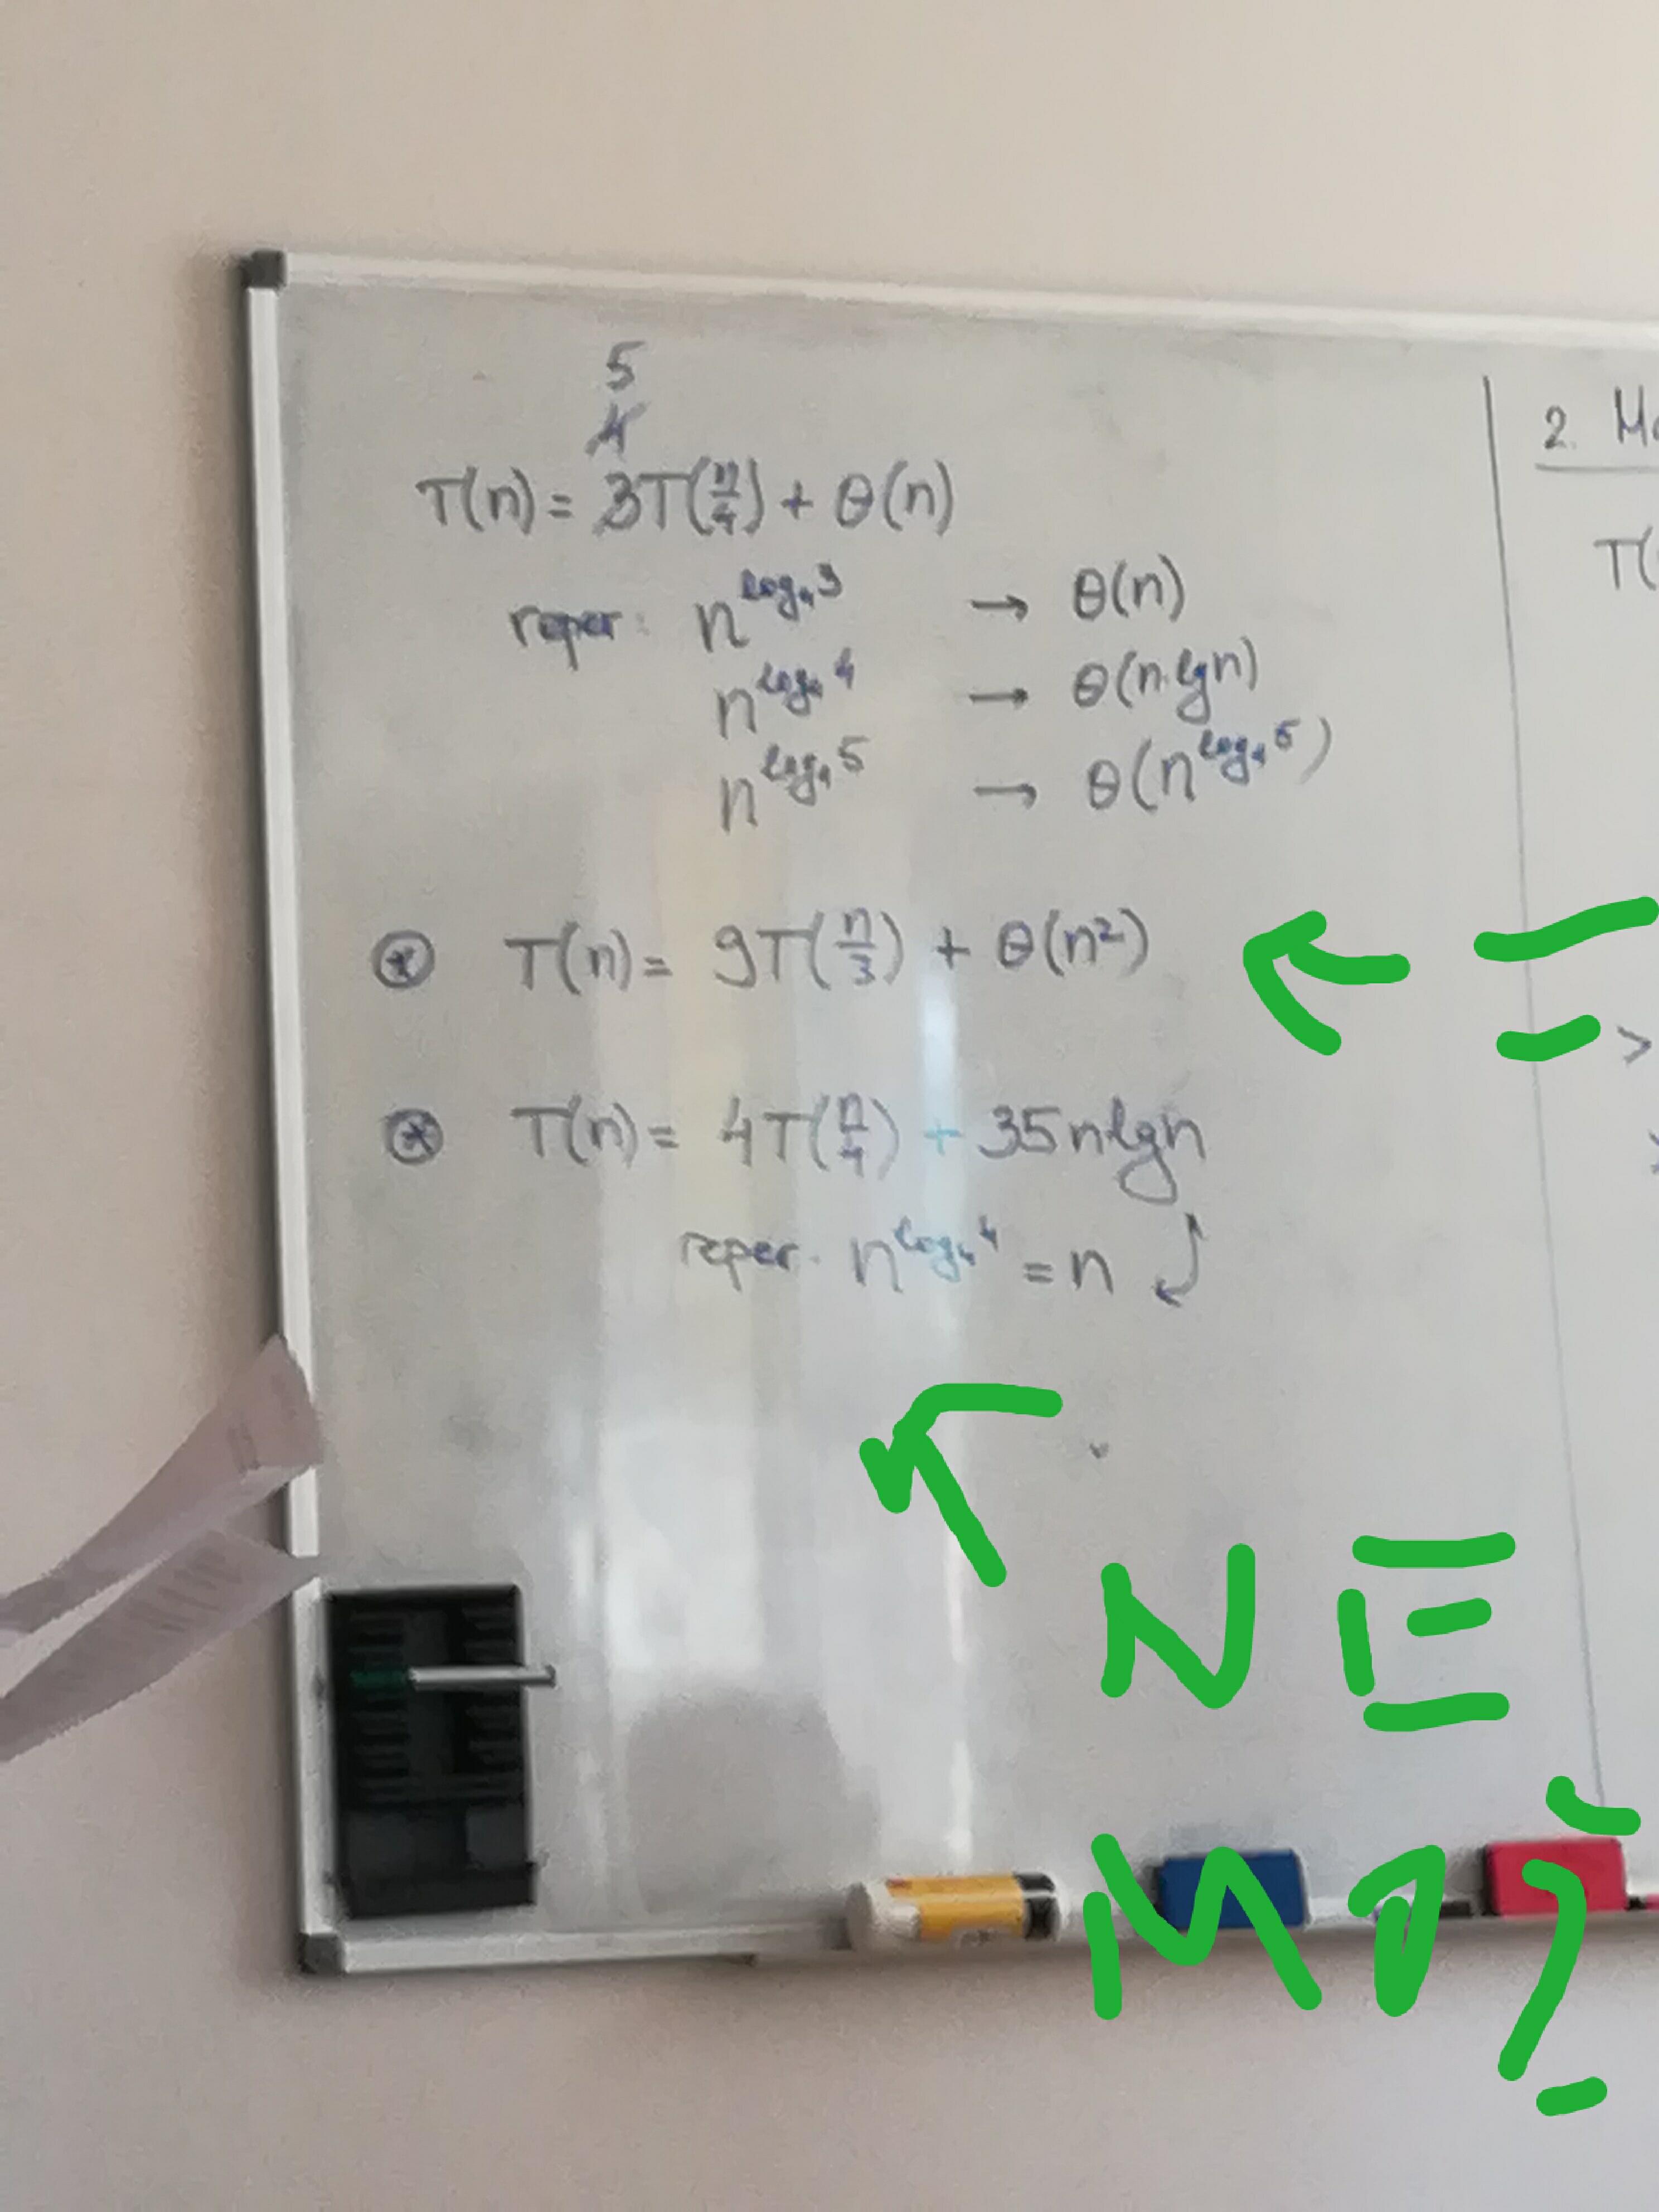 5
4
T(n) = 3T(n/4) + θ(n)
reper: n^log₄3 → θ(n)
n^log₄4 → θ(n·lgn)
n^log₄5 → θ(n^log₄5)
⊛ T(n) = 9T(n/3) + θ(n²)
⊛ T(n) = 4T(n/4) + 35nlgn
reper. n^log₄4 = n
2.
T(
>
NE